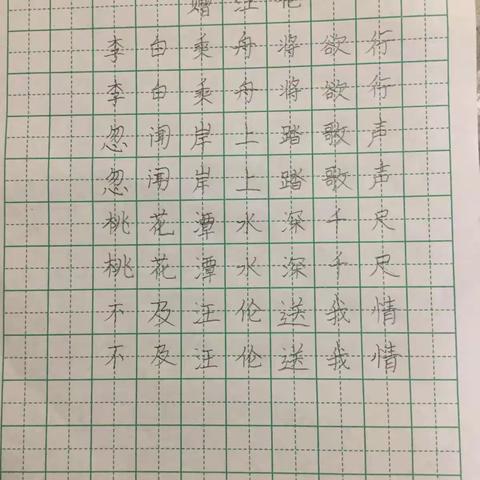 赠汪伦
李白乘舟将欲行
李白乘舟将欲行
忽闻岸上踏歌声
忽闻岸上踏歌声
桃花潭水深千尺
桃花潭水深千尺
不及汪伦送我情
不及汪伦送我情